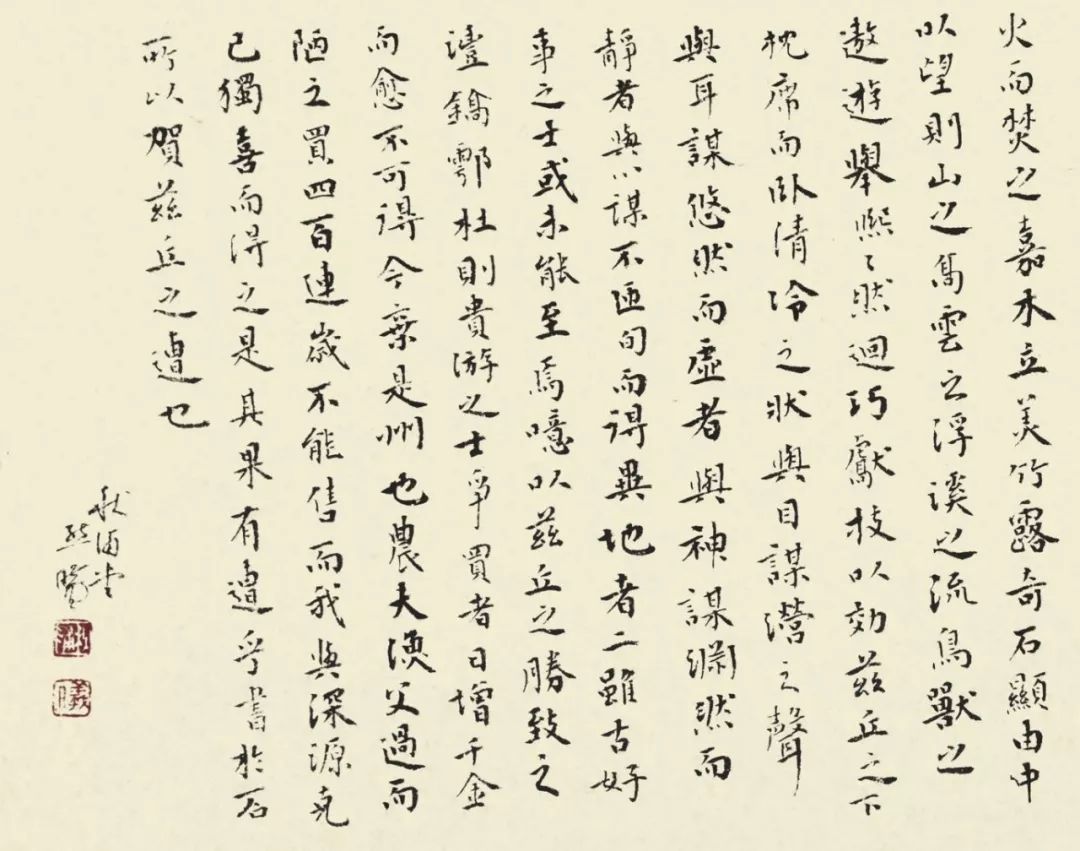 火而焚之嘉木立美竹露奇石顯由中
以望則山之高雲之浮溪之流鳥獸之
遨遊舉熙〻然迴巧獻技以効茲丘之下
枕席而臥清泠之狀與目謀瀯之聲
與耳謀悠然而虛者與神謀淵然而
靜者與心謀不匝旬而得異地者二雖古好
事之士或未能至焉噫以茲丘之勝致之
灃鎬鄠杜則貴游之士爭買者日增千金
而愈不可得今棄是州也農夫漁父過而
陋之買四百連歲不能售而我與深源克
己獨喜而得之是其果有遭乎書於石
所以賀茲丘之遭也
曦